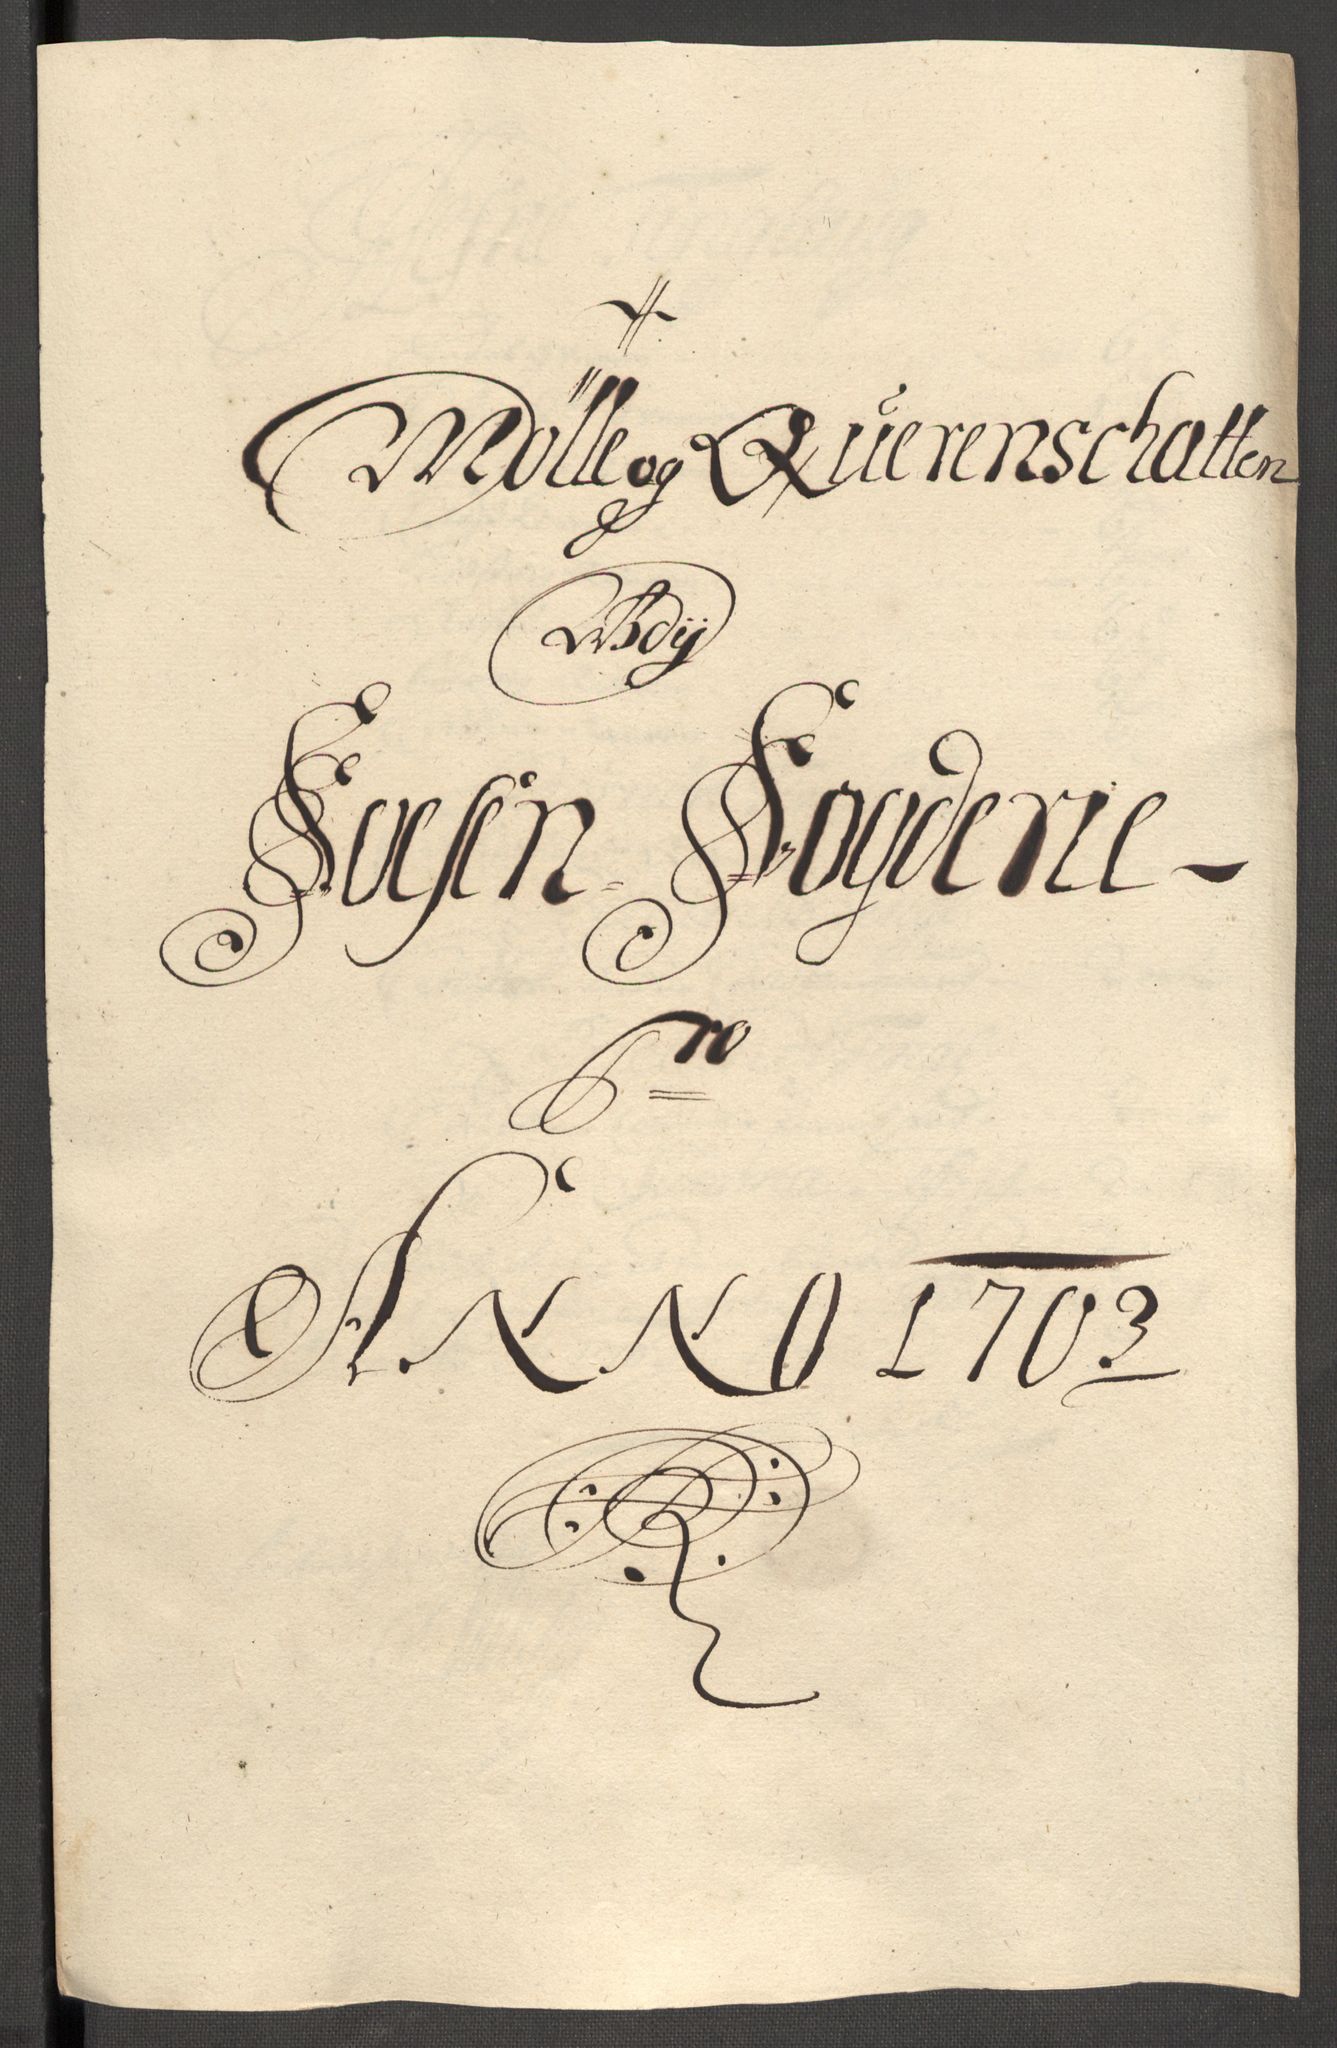 Mölle og Querenschatten
Udj
Fosen Fogderie
Pro
ANNO 1703